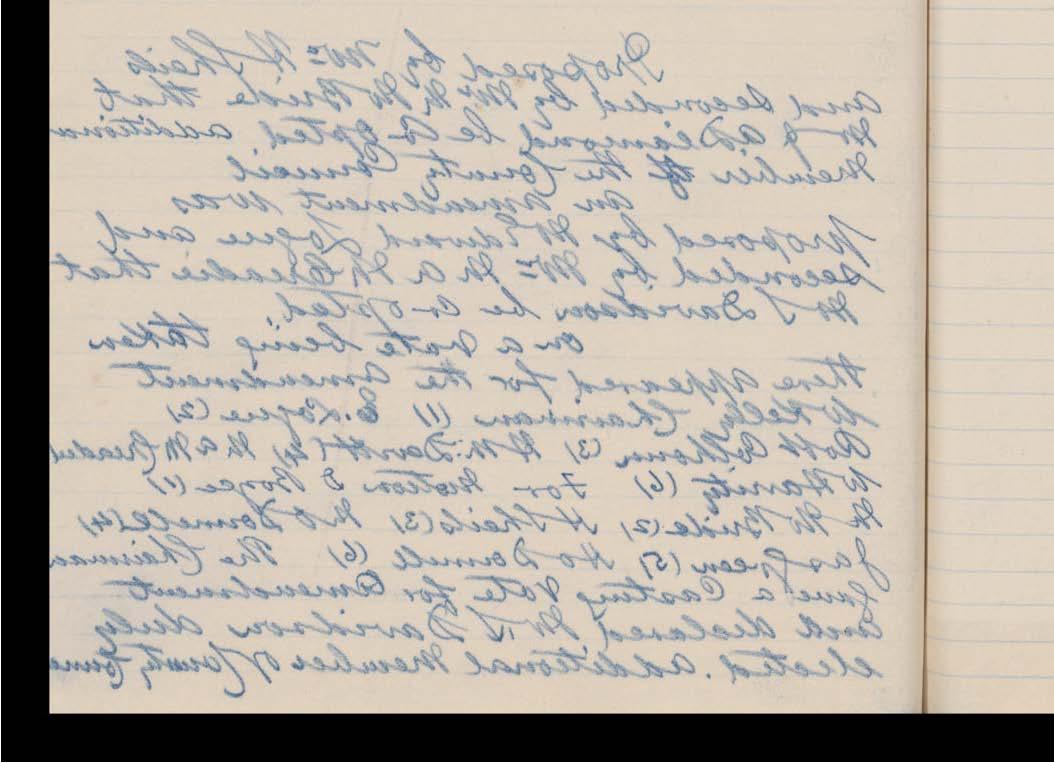 Proposed by Mr H Sheils
and seconded by Mr McBride that
Mr Diamond be Co opted additiona
member of the County Council
an amendment was
proposed by Mr Edward Logue and
seconded by Mr M A that
Mr J Davidson be co-opted
on a vote being taken
there appeared for the amendment
W Kelly Chairman (1) E. Logue (2)
Robt Colhoun (3) (4) M A
W (6) For Motion D Boyce (1)
McBride (2) H Sheils (3) (4)
Jas Green (5) (6) The Chairman
gave a Casting Vote for Amendment
and declared Mr J Davidson duly
elected. additional Member of County Counc